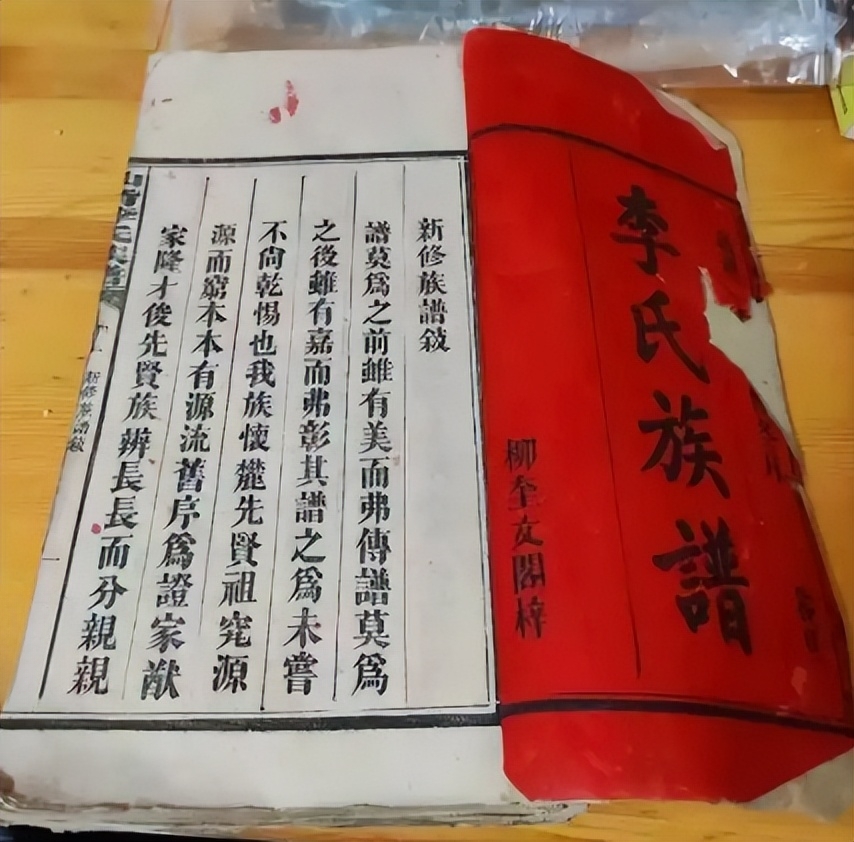 李氏族譜
柳奎文閣梓
新修族譜敍
譜莫爲之前雖有美而弗傳譜莫爲
之後雖有嘉而弗彰其譜之爲未嘗
不尙乾惕也我族懷麓先賢祖究源
源而窮本本有源流舊序爲證家猷
家隆才俊先賢族辨長長而分親親
新修族譜敍